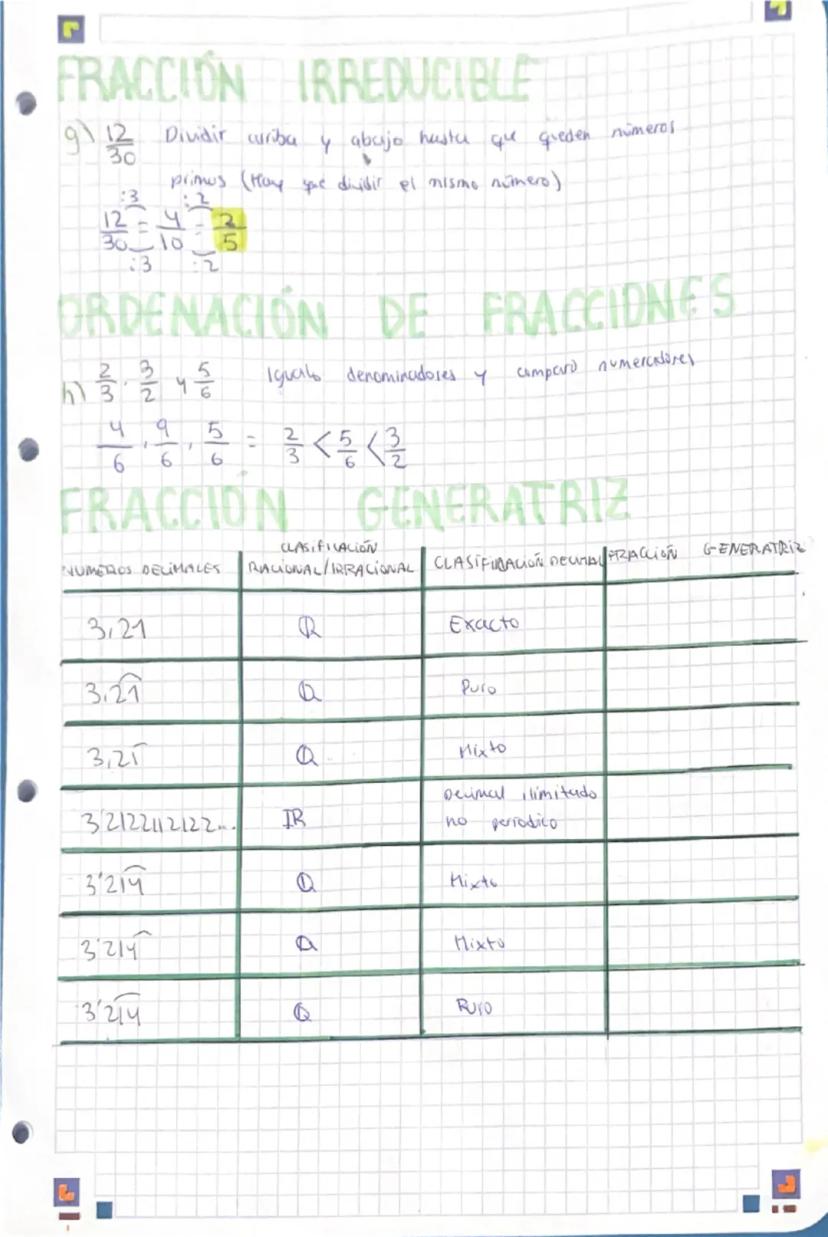 FRACCIÓN IRREDUCIBLE
g) 12/30 Dividir arriba y abajo hasta que queden números
primos (Hay que dividir el mismo número)
:3 :2
12/30 = 4/10 = 2/5
:3 :2
ORDENACIÓN DE FRACCIONES
h) 2/3, 3/2 y 5/6 Igualo denominadores y comparo numeradores
4/6, 9/6, 5/6 = 2/3 < 5/6 < 3/2
FRACCIÓN GENERATRIZ
NÚMEROS DECIMALES CLASIFICACIÓN RACIONAL/IRRACIONAL CLASIFICACIÓN DECIMAL FRACCIÓN GENERATRIZ
3,21 Q Exacto
3,2͡1 Q Puro
3,21̂ Q Mixto
3'2122112122... IR Decimal ilimitado no periodico
3'21͡4 Q Mixto
3'214̂ Q Mixto
3'2͡1͡4 Q Puro